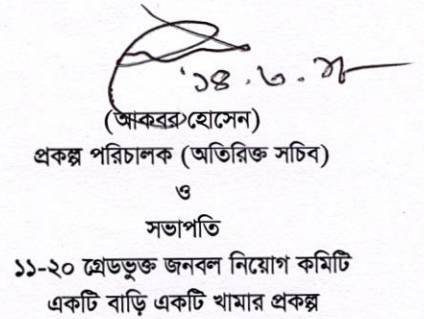 ১৪.৬.
(আকবর হোসেন)
প্রকল্প পরিচালক (অতিরিক্ত সচিব)
ও
সভাপতি
১১-২০ গ্রেডভুক্ত জনবল নিয়োগ কমিটি
একটি বাড়ি একটি খামার প্রকল্প